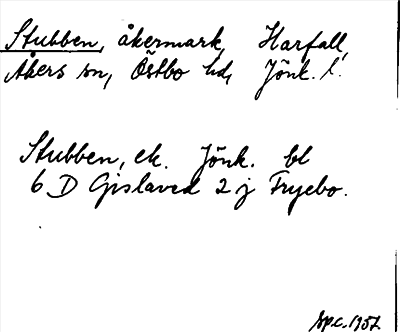 Stubben, åkermark, Harfall,
Åkers sn, Östbo hd, Jönk. l.
Stubben, ek. Jönk. bl
6 D Gislaved 2 j Fryebo.
Sp.c. 1957